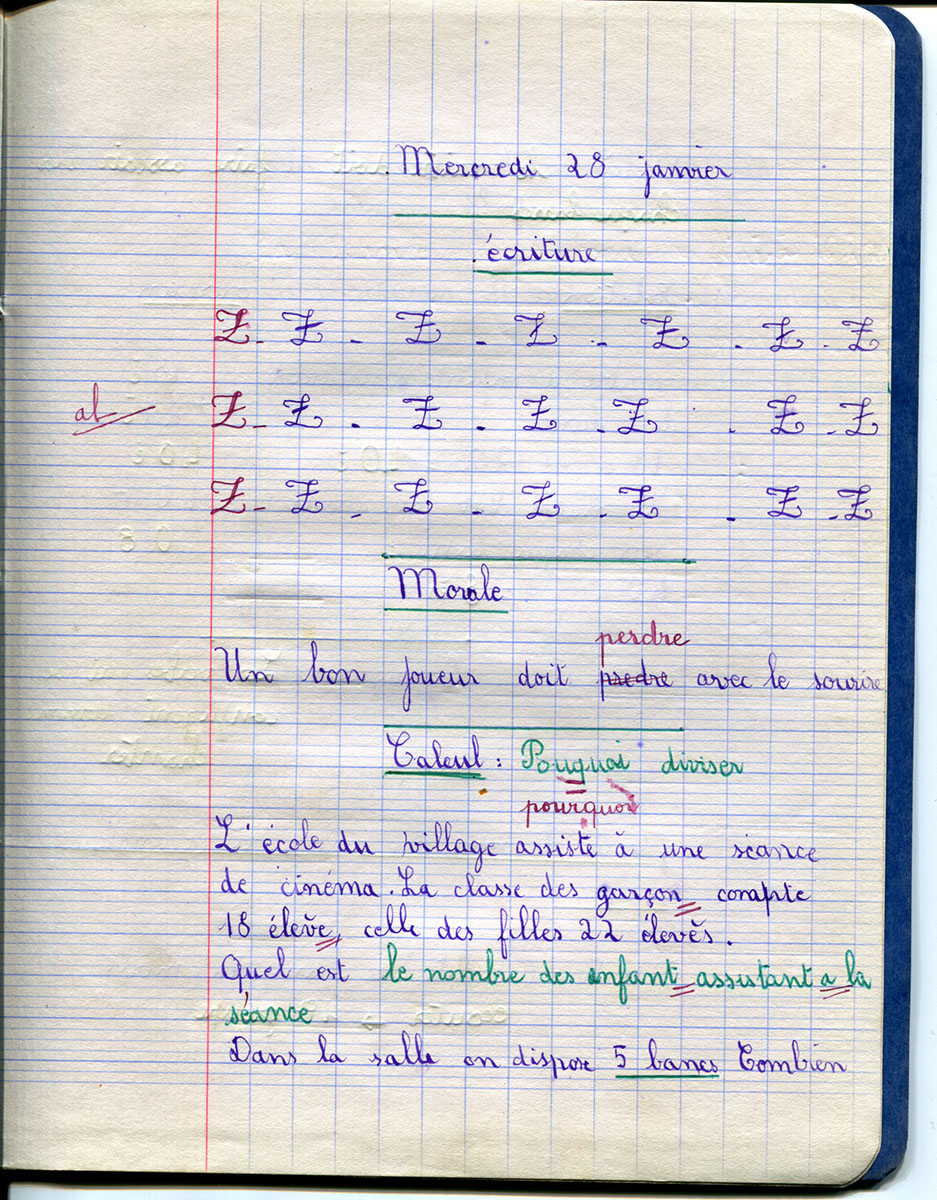 Mercredi 28 janvier
écriture
Z - Z - Z - Z - Z - Z - Z
Z - Z - Z - Z - Z - Z - Z
Z - Z - Z - Z - Z - Z - Z
Morale
perdre
Un bon joueur doit predre avec le sourire
Calcul : Pouquoi diviser
pourquoi
L'école du village assiste à une séance
de cinéma. La classe des garçon compte
18 élève, celle des filles 22 élevès.
Quel est le nombre des enfant assistant a la
séance
Dans la salle on dispose 5 bancs Combien